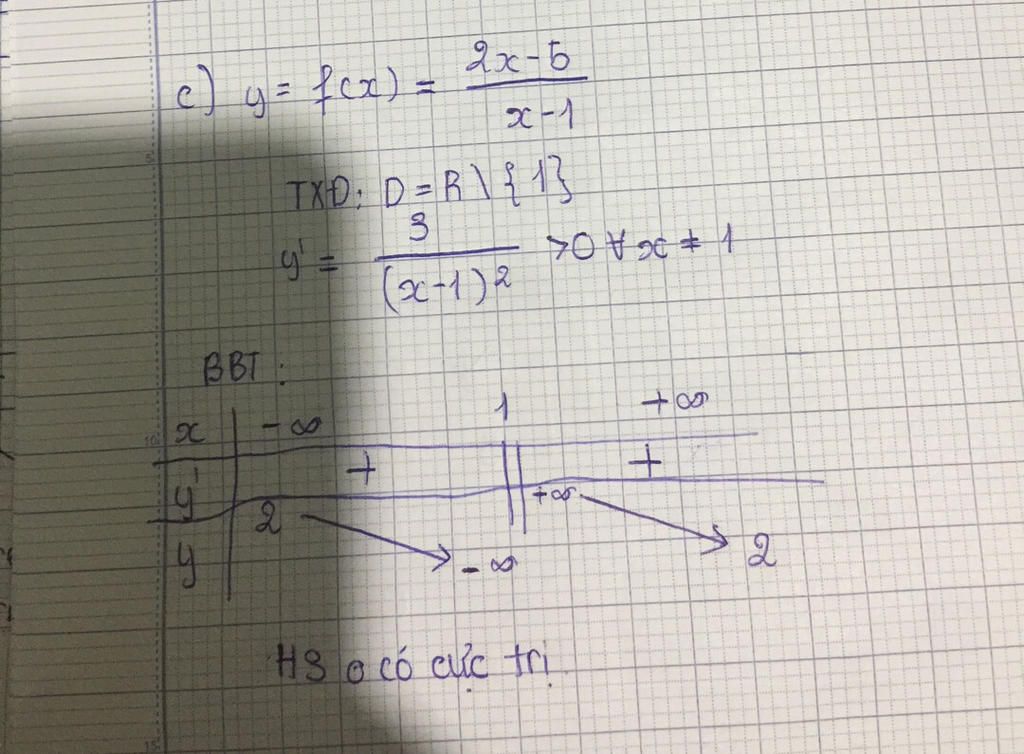 c) y = f(x) = 2x-5 / x-1
TXĐ: D = R \ {1}
y' = 3 / (x-1)² >0 ∀x ≠ 1
BBT:
x -∞ 1 +∞
y' + || +
y 2 -∞ || +∞ 2
HS o có cực trị